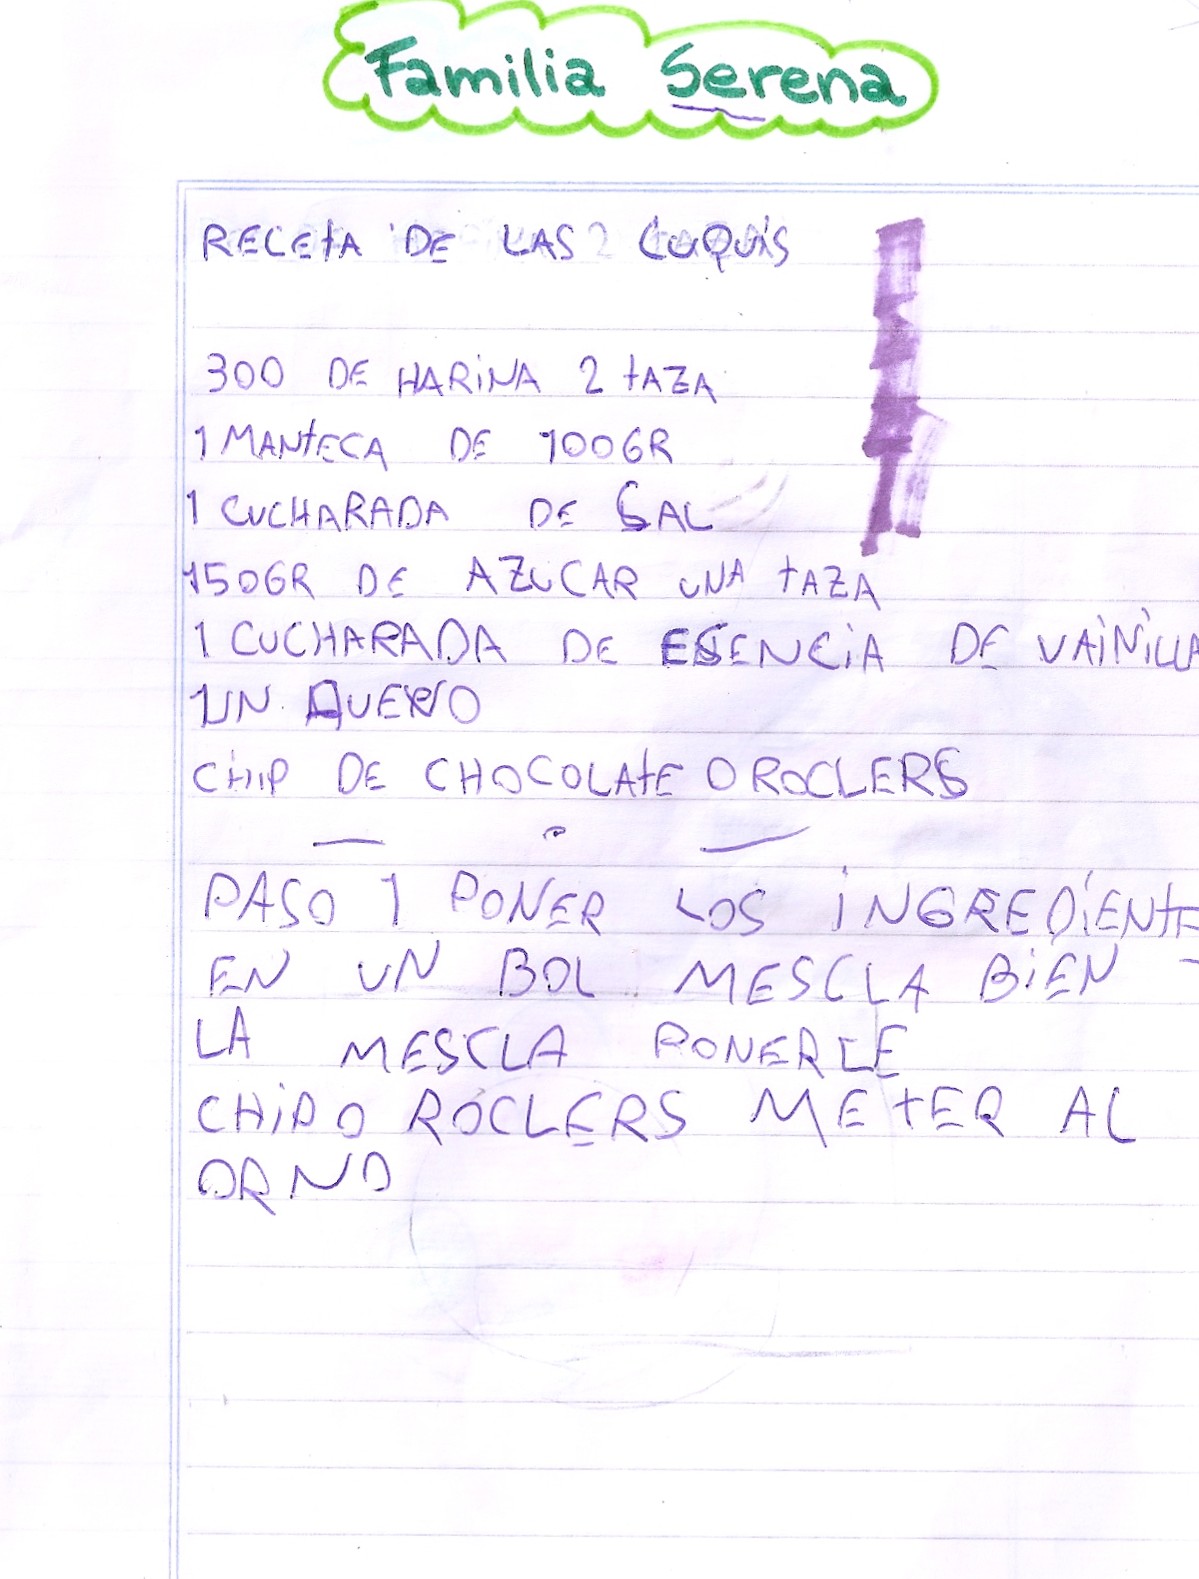 Familia Serena
RECEtA DE LAS CUQUiS
300 DE HARiNA 2 tAZA
1 MANtECA DE 100GR
1 CUCHARADA DE SAL
150GR DE AZUCAR UNA tAZA
1 CUCHARADA DE ESENCiA DE VAiNiLLA
UN
CHiP DE CHOCOLAtE O ROCLERS
PASO 1 PONER LOS iNGREDiENtE
EN UN BOL MESCLA BiEN
LA MESCLA PONERLE
CHiP O ROCLERS METER AL
ORNO